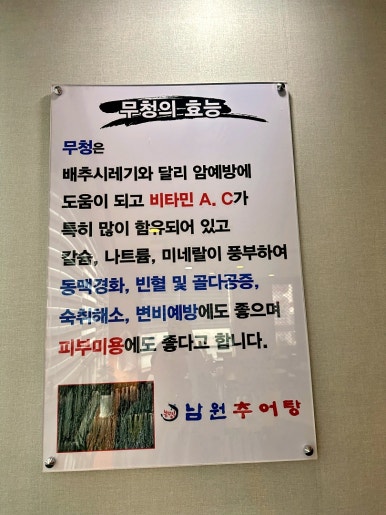 무청의 효능
무청은
배추시레기와 달리 암예방에
도움이 되고 비타민 A. C가
특히 많이 함유되어 있고
칼슘, 나트륨, 미네랄이 풍부하여
동맥경화, 빈혈 및 골다공증,
숙취해소, 변비예방에도 좋으며
피부미용에도 좋다고 합니다.
남원추어탕